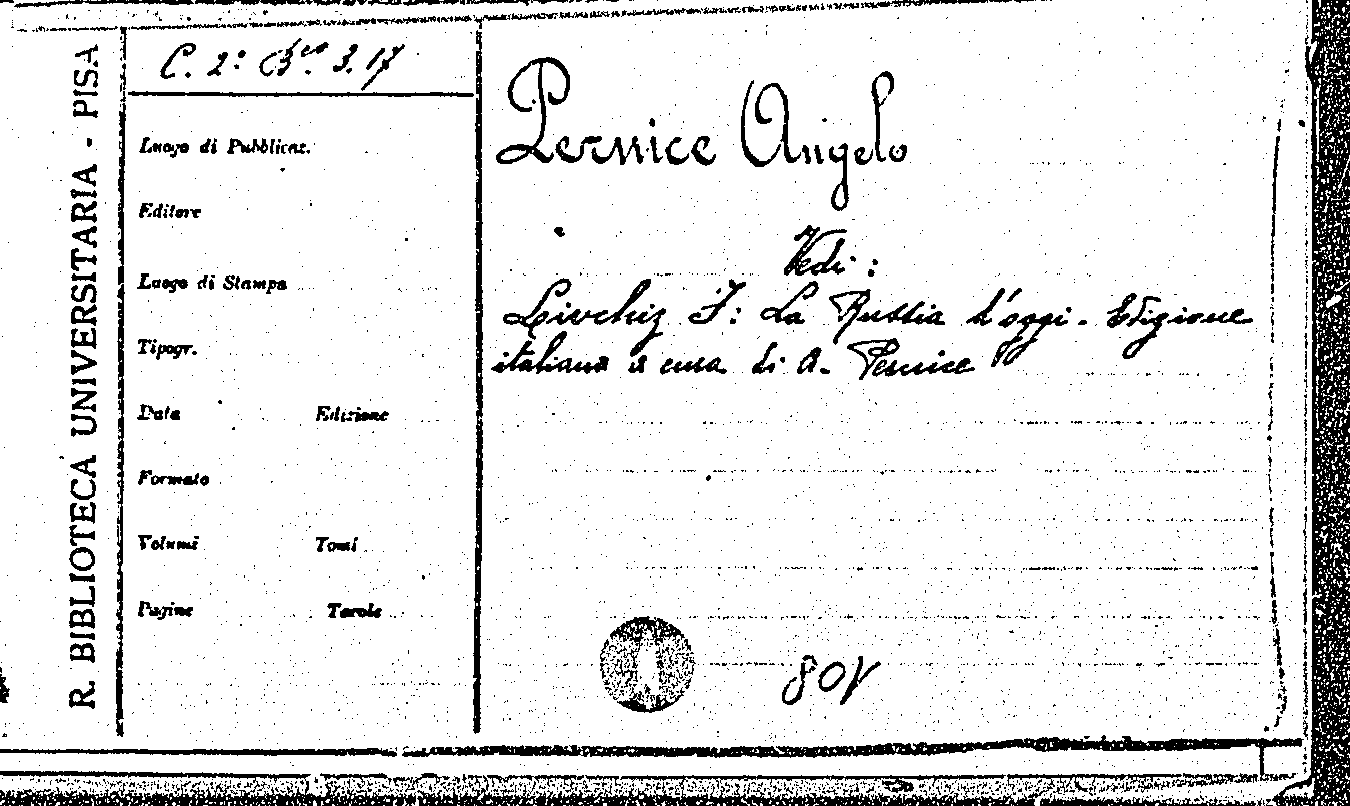 R. BIBLIOTECA UNIVERSITARIA - PISA
C. 2: 3.17
Luogo di Pubblicaz.
Editore
Luogo di Stampa
Tipogr.
Data Edizione
Formato
Volumi Tomi
Pagine Tavole
Pernice Angelo
Vedi:
La Russia d'oggi. Edizione
italiana a cura di A. Pernice